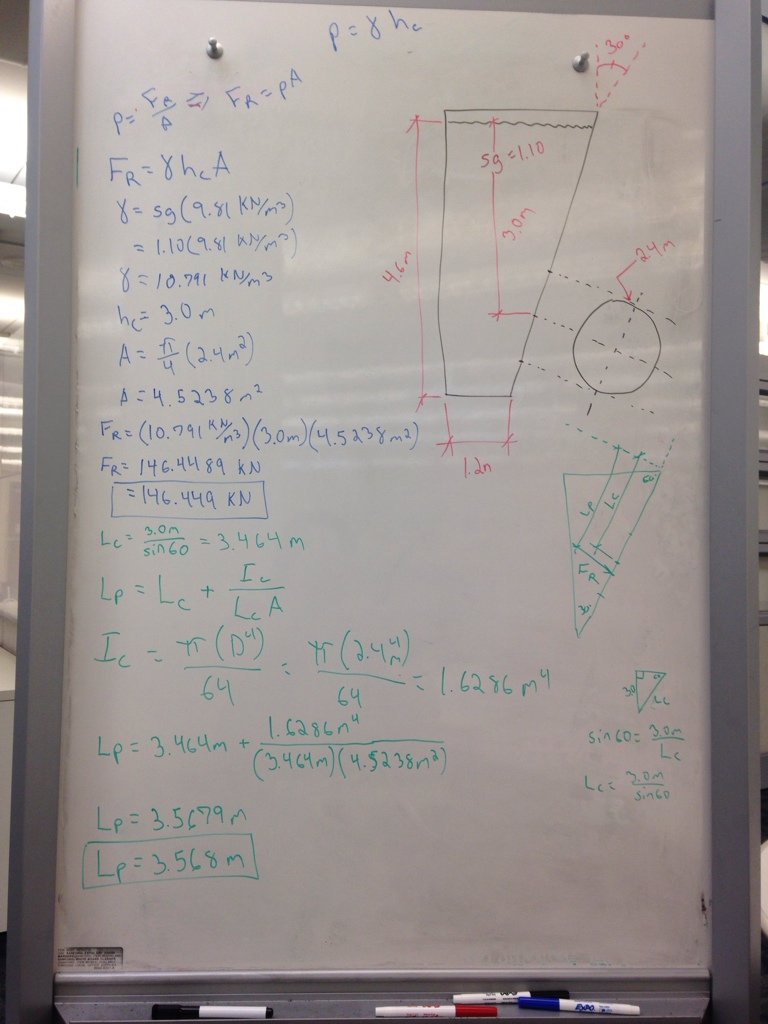 p = γ hc
p = FR/A ⇒ FR = pA
FR = γ hc A
γ = sg(9.81 KN/m³)
= 1.10(9.81 KN/m³)
γ = 10.791 KN/m³
hc = 3.0 m
A = π/4 (2.4m²)
A = 4.5238 m²
FR = (10.791 KN/m³)(3.0m)(4.5238m²)
FR = 146.4489 KN
= 146.449 KN
Lc = 3.0m/sin60 = 3.464 m
Lp = Lc + Ic/(Lc A)
Ic = π(D⁴)/64 = π(2.4m⁴)/64 = 1.6286 m⁴
Lp = 3.464m + 1.6286m⁴/(3.464m)(4.5238m²)
Lp = 3.5679 m
Lp = 3.568 m
30°
sg = 1.10
3.0m
4.6m
2.4m
1.2m
60°
Lp
Lc
FR
30°
3.0
Lc
sin60 = 3.0m/Lc
Lc = 3.0m/sin60
EXPO